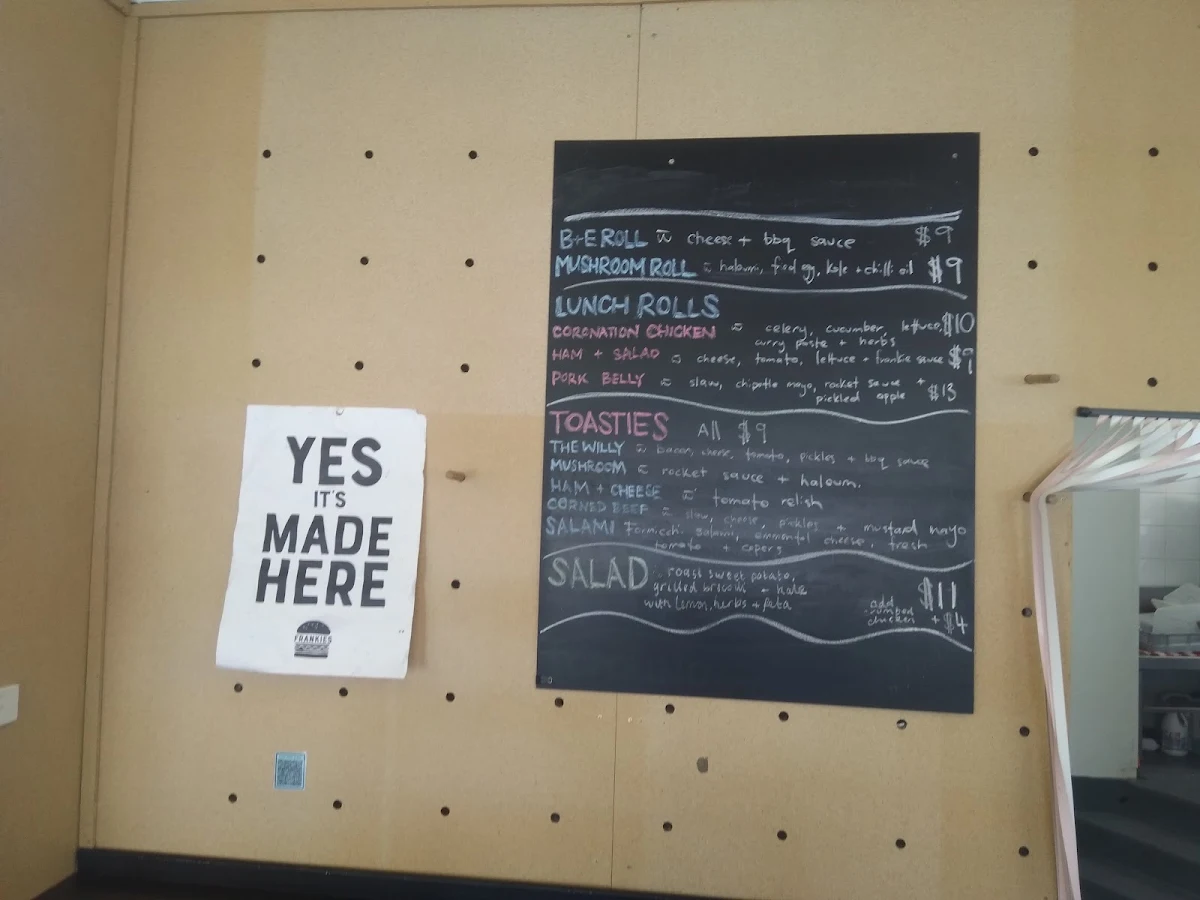 YES
IT'S
MADE
HERE
FRANKIES
B+E ROLL w cheese + bbq sauce $9
MUSHROOM ROLL w haloumi, fried egg, kale + chilli oil $9
LUNCH ROLLS
CORONATION CHICKEN w celery, cucumber, lettuce, $10
curry paste + herbs
HAM + SALAD w cheese, tomato, lettuce + frankie sauce $9
PORK BELLY w slaw, chipotle mayo, rocket sauce +
pickled apple $13
TOASTIES All $9
THE WILLY w bacon, cheese, tomato, pickles + bbq sauce
MUSHROOM w rocket sauce + haloumi
HAM + CHEESE w tomato relish
CORNED BEEF w slaw, cheese, pickles + mustard mayo
SALAMI salami, emmental cheese, fresh
tomato + capers
SALAD roast sweet potato,
grilled broccoli + kale $11
with lemon, herbs + feta add
crumbed
chicken + $4